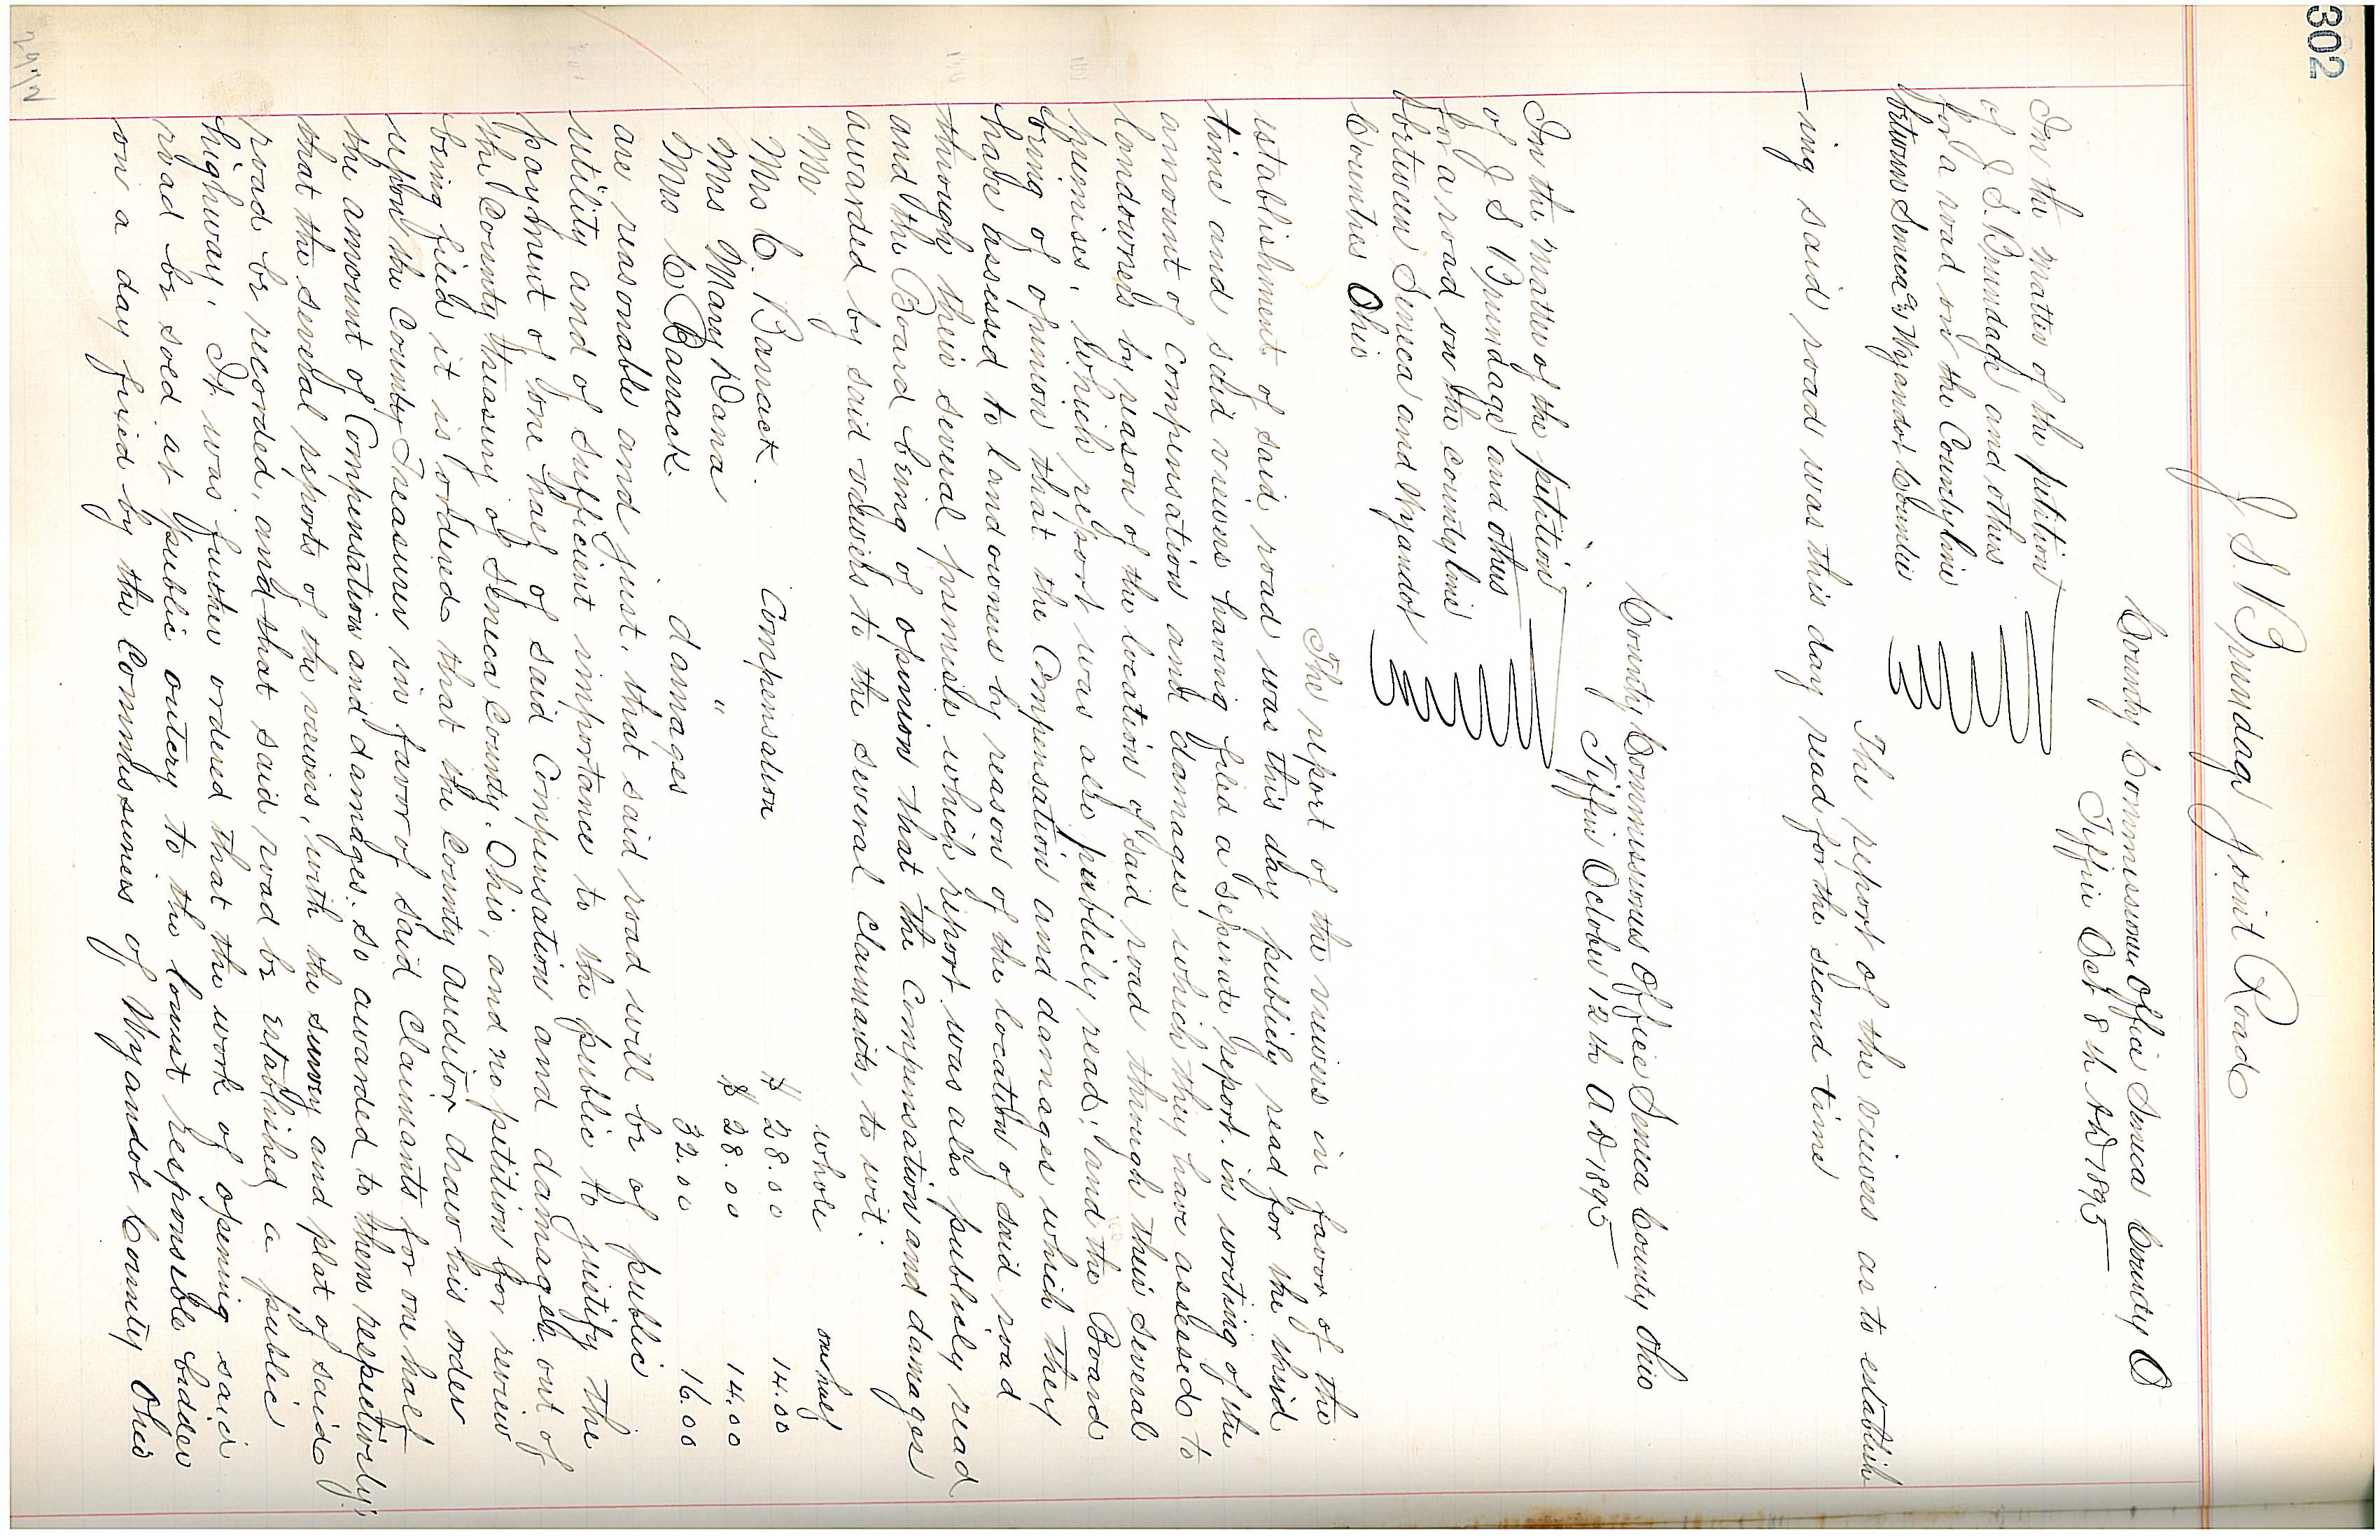 302
J. S. Brundage joint Road
County Commissioners Office Seneca County O
Tiffin Oct 8th AD 1895
In the matter of the petition
of J. S. Brundage and others
for a road on the County line
between Seneca & Wyandot Counties
The report of the viewers as to establish
-ing said road was this day read for the second time
County Commissioners Office Seneca County Ohio
Tiffin October 12th A D 1895
In the matter of the petition
of J S Brundage and others
for a road on the county line
between Seneca and Wyandot
Counties Ohio
The report of the viewers in favor of the
establishment of said road was this day publicly read for the third
time and said viewers having filed a seperate report in writing of the
amount of Compensation and damages which they have assessed to
landowners by reason of the location of said road through their several
premises, which report was also publicly read; and the Board
being of opinion that the Compensation and damages which they
have assessed to landowners by reason of the location of said road
through their several premises which report was also publicly read
and the Board being of opinion that the Compensation and damages
awarded by said viewers to the several claimants, to wit:
Mr whole one half
Mrs C. Barrack. Compensation $ 28.00 14.00
Mrs Mary Dana " $ 28.00 14.00
Mrs C Barrack. damages 32.00 16.00
are reasonable and just, that said road will be of public
utility and of sufficient importance to the public to justify the
payment of one half of said Compensation and damages out of
the County treasury of Seneca County, Ohio, and no petition for review
being filed it is ordered that the County Auditor draw his order
upon the County Treasurer in favor of said Claimants for one half
the amount of Compensation and damages so awarded to them respectively;
that the several reports of the viewers, with the survey and plat of said
road be recorded, and that said road be established a public
highway. It was further ordered that the work of opening said
road be sold at public outcry to the lowest responsible bidder
on a day fixed by the Commissioners of Wyandot County Ohio